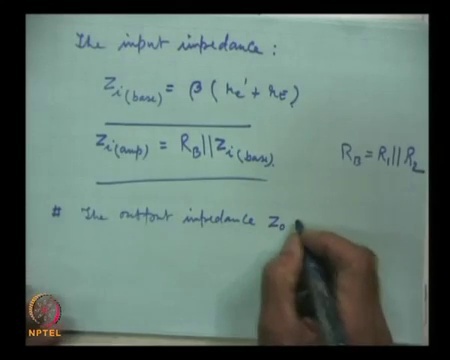 The input impedance :
Zi(base) = β ( re' + rE )
Zi(amp) = RB || Zi(base).
RB = R1 || R2
# The output impedance Zo
NPTEL